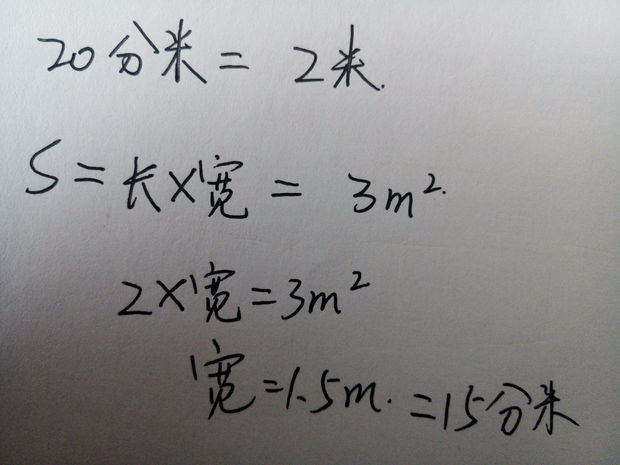 20分米 = 2米.
S = 长×宽 = 3m².
2×宽 = 3m²
宽 = 1.5m. = 15分米